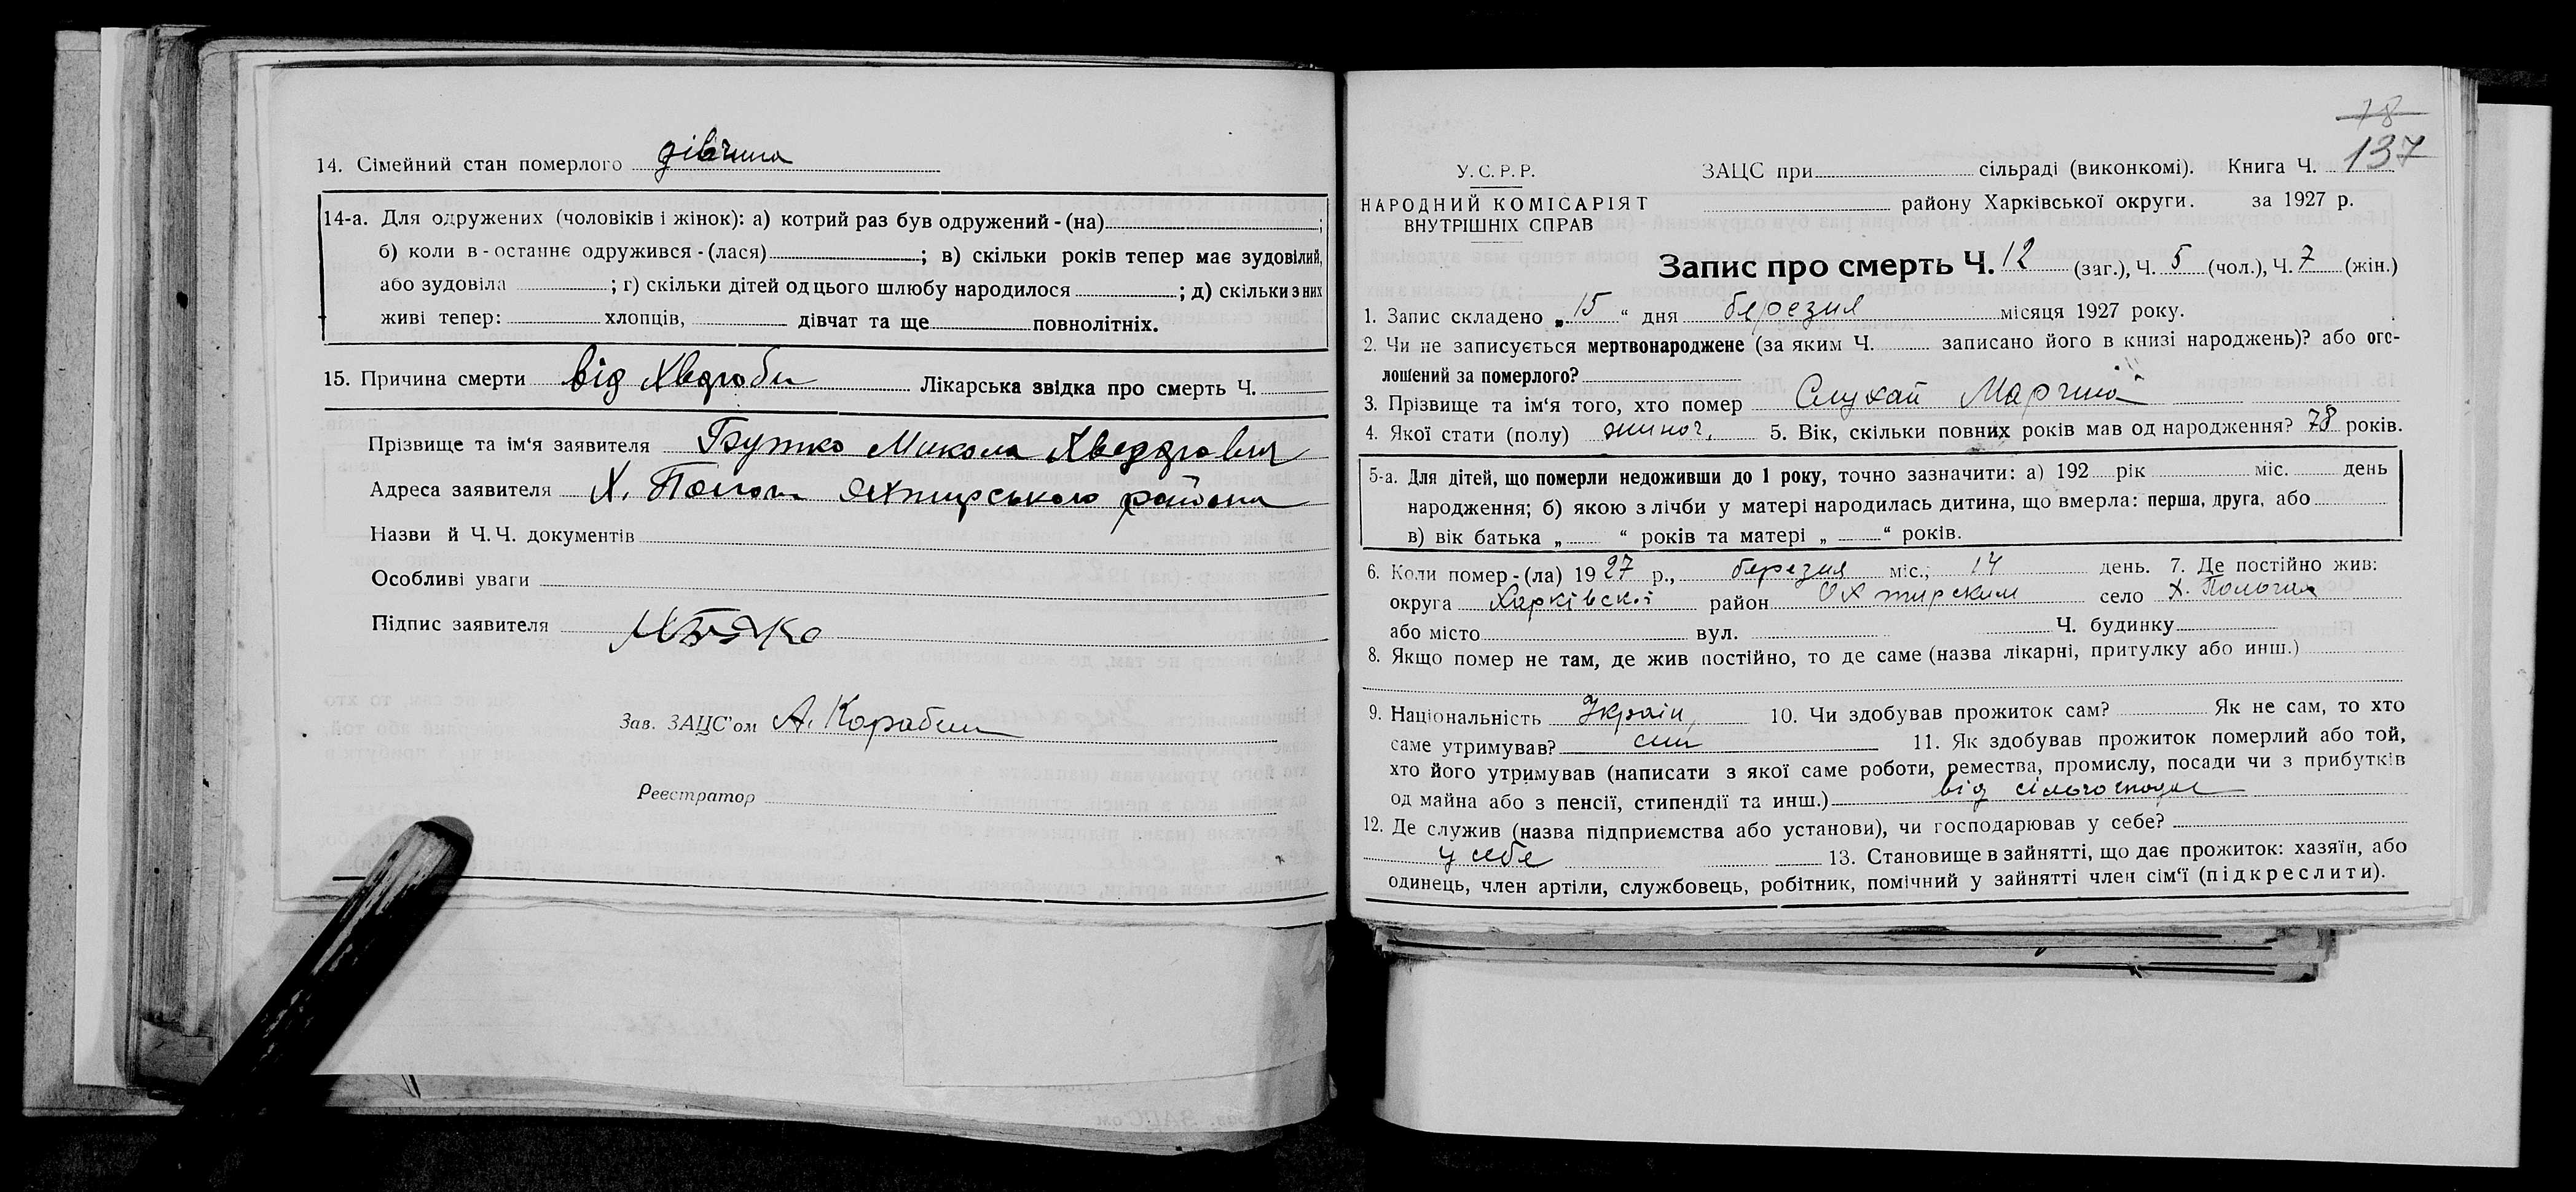 14. Сімейний стан померлого дівчина
14-а. Для одружених (чоловіків і жінок): а) котрий раз був одружений-(на) ;
б) коли в-останнє одружився-(лася) ; в) скільки років тепер має зудовілий,
або зудовіла ; г) скільки дітей од цього шлюбу народилося ; д) скільки з них
живі тепер: хлопців, дівчат та ще повнолітніх.
15. Причина смерти від Хвороби Лікарська звідка про смерть Ч.
Прізвище та ім'я заявителя Бутко Микола Хведорович
Адреса заявителя Х. Пологи Охтирського району
Назви й Ч.Ч. документів
Особливі уваги
Підпис заявителя
Зав. ЗАЦС'ом А. Карабин
Реєстратор
78
137
У.С.Р.Р.
НАРОДНИЙ КОМІСАРІЯТ
ВНУТРІШНІХ СПРАВ
ЗАЦС при сільраді (виконкомі). Книга Ч.
району Харківської округи. за 1927 р.
Запис про смерть Ч. 12 (заг.), Ч. 5 (чол.), Ч. 7 (жін.)
1. Запис складено „ 15 “ дня березня місяця 1927 року.
2. Чи не записується мертвонароджене (за яким Ч. записано його в книзі народжень)? або ого-
лошений за померлого?
3. Прізвище та ім'я того, хто помер Слухай
4. Якої статі (полу) жиноч. 5. Вік, скільки повних років мав од народження? 78 років.
5-а. Для дітей, що померли недоживши до 1 року, точно зазначити: а) 192 рік міс. день
народження; б) якою з лічби у матері народилась дитина, що вмерла: перша, друга, або
в) вік батька „ “ років та матері „ “ років.
6. Коли помер-(ла) 1927 р., березня міс., 14 день. 7. Де постійно жив:
округа Харківскої район Охтирским село Х. Пологах
або місто вул. Ч. будинку
8. Якщо помер не там, де жив постійно, то де саме (назва лікарні, притулку або инш.)
9. Національність Україн. 10. Чи здобував прожиток сам? Як не сам, то хто
саме утримував? син 11. Як здобував прожиток померлий або той,
хто його утримував (написати з якої саме роботи, ремества, промислу, посади чи з прибутків
од майна або з пенсії, стипендії та инш.) від
12. Де служив (назва підприємства або установи), чи господарював у себе?
у себе 13. Становище в зайнятті, що дає прожиток: хазяїн, або
одинець, член артіли, службовець, робітник, помічний у зайнятті член сім'ї (підкреслити).